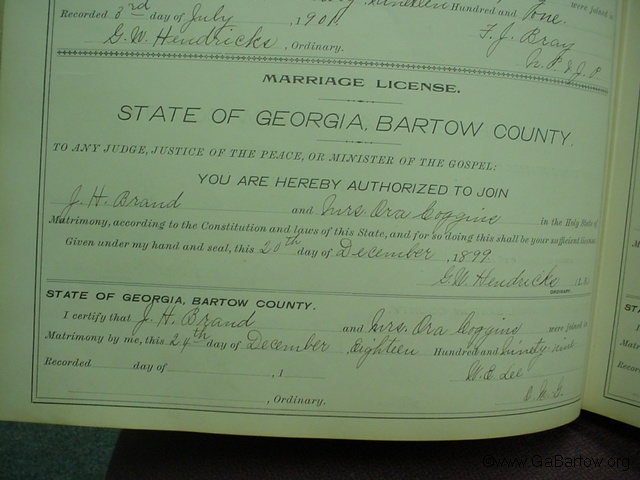 Hundred and One. were joined in
Recorded 3rd day of July, 1901
G.W. Hendricks, Ordinary. F. J. Bray
N.P. & J.P.
MARRIAGE LICENSE.
STATE OF GEORGIA, BARTOW COUNTY.
TO ANY JUDGE, JUSTICE OF THE PEACE, OR MINISTER OF THE GOSPEL:
YOU ARE HEREBY AUTHORIZED TO JOIN
J. H. Brand and Mrs. Ora Coggins in the Holy State of
Matrimony, according to the Constitution and laws of this State, and for so doing this shall be your sufficient license.
Given under my hand and seal, this 20th day of December, 1899
G.W. Hendricks [L.S.]
ORDINARY.
STATE OF GEORGIA, BARTOW COUNTY.
I certify that J. H. Brand and Mrs. Ora Coggins were joined in
Matrimony by me, this 24th day of December Eighteen Hundred and ninety nine
Recorded day of , 1 W. E. Lee
, Ordinary. O. M. G.
©www.GaBartow.org